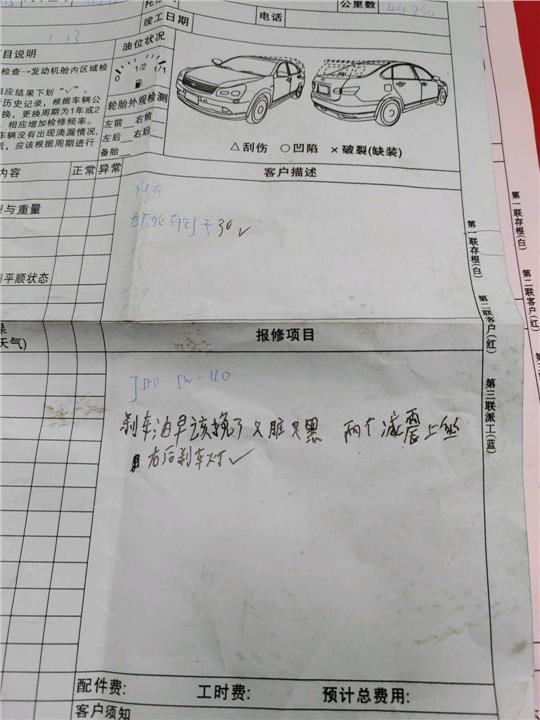 公里数 44950
竣工日期 电话
项目说明
油位状况
检查→发动机舱内区域检
0 1/2 1
相应结果下划“√”。
历史记录，根据车辆公
轮胎外观检测
换，更换周期为1年或2
左前 右前
相应增加检修频率。
左后 右后
车辆没有出现滴漏情况
备胎
应该根据周期进行
△刮伤 ○凹陷 ×破裂(缺装)
内容 正常 异常
客户描述
与重量
30√
平顺状态
天气)
报修项目
5W-40
刹车油早该换了又脏又黑 两个减震上坐
右后刹车灯√
第一联存根(白)
第二联客户(红)
第三联派工(蓝)
第一联存根(白)
第二联客户(红)
第三联派工(蓝)
配件费: 工时费: 预计总费用:
客户须知